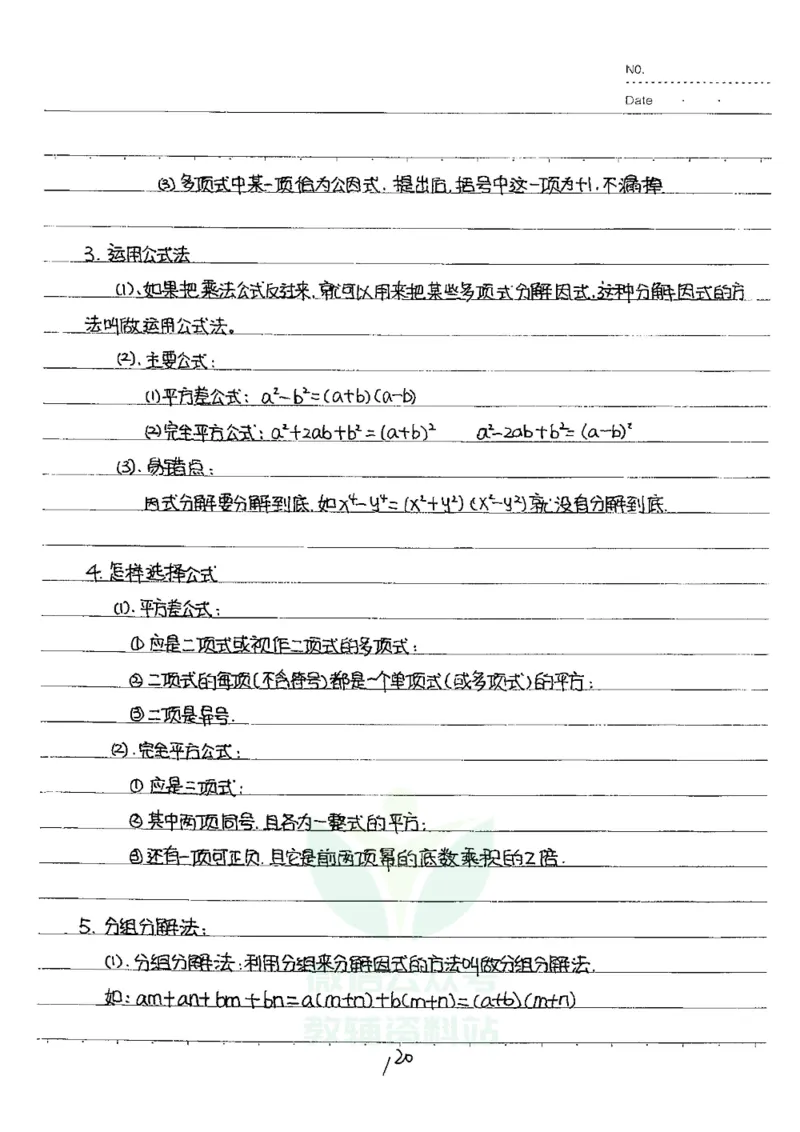 NO.
Date · ·
(3)多项式中某一项恰为公因式.提出后,括号中这一项为+1,不漏掉
3. 运用公式法
(1)、如果把乘法公式反过来,就可以用来把某些多项式分解因式,这种分解因式的方
法叫做运用公式法。
(2)、主要公式:
(1)平方差公式: a²-b²=(a+b)(a-b)
(2)完全平方公式: a²+2ab+b²=(a+b)² a²-2ab+b²=(a-b)²
(3)、易错点:
因式分解要分解到底.如x⁴-y⁴=(x²+y²)(x²-y²)就没有分解到底.
4.怎样选择公式
(1).平方差公式:
① 应是二项式或视作二项式的多项式;
② 二项式的每项(不含符号)都是一个单项式(或多项式)的平方;
③ 二项是异号.
(2).完全平方公式:
① 应是三项式;
② 其中两项同号,且各为一整式的平方;
③ 还有一项可正负,且它是前两项幂的底数乘积的2倍.
5. 分组分解法:
(1).分组分解法:利用分组来分解因式的方法叫做分组分解法.
如: am+an+bm+bn=a(m+n)+b(m+n)=(a+b)(m+n)
微信公众号
教辅资料站
120